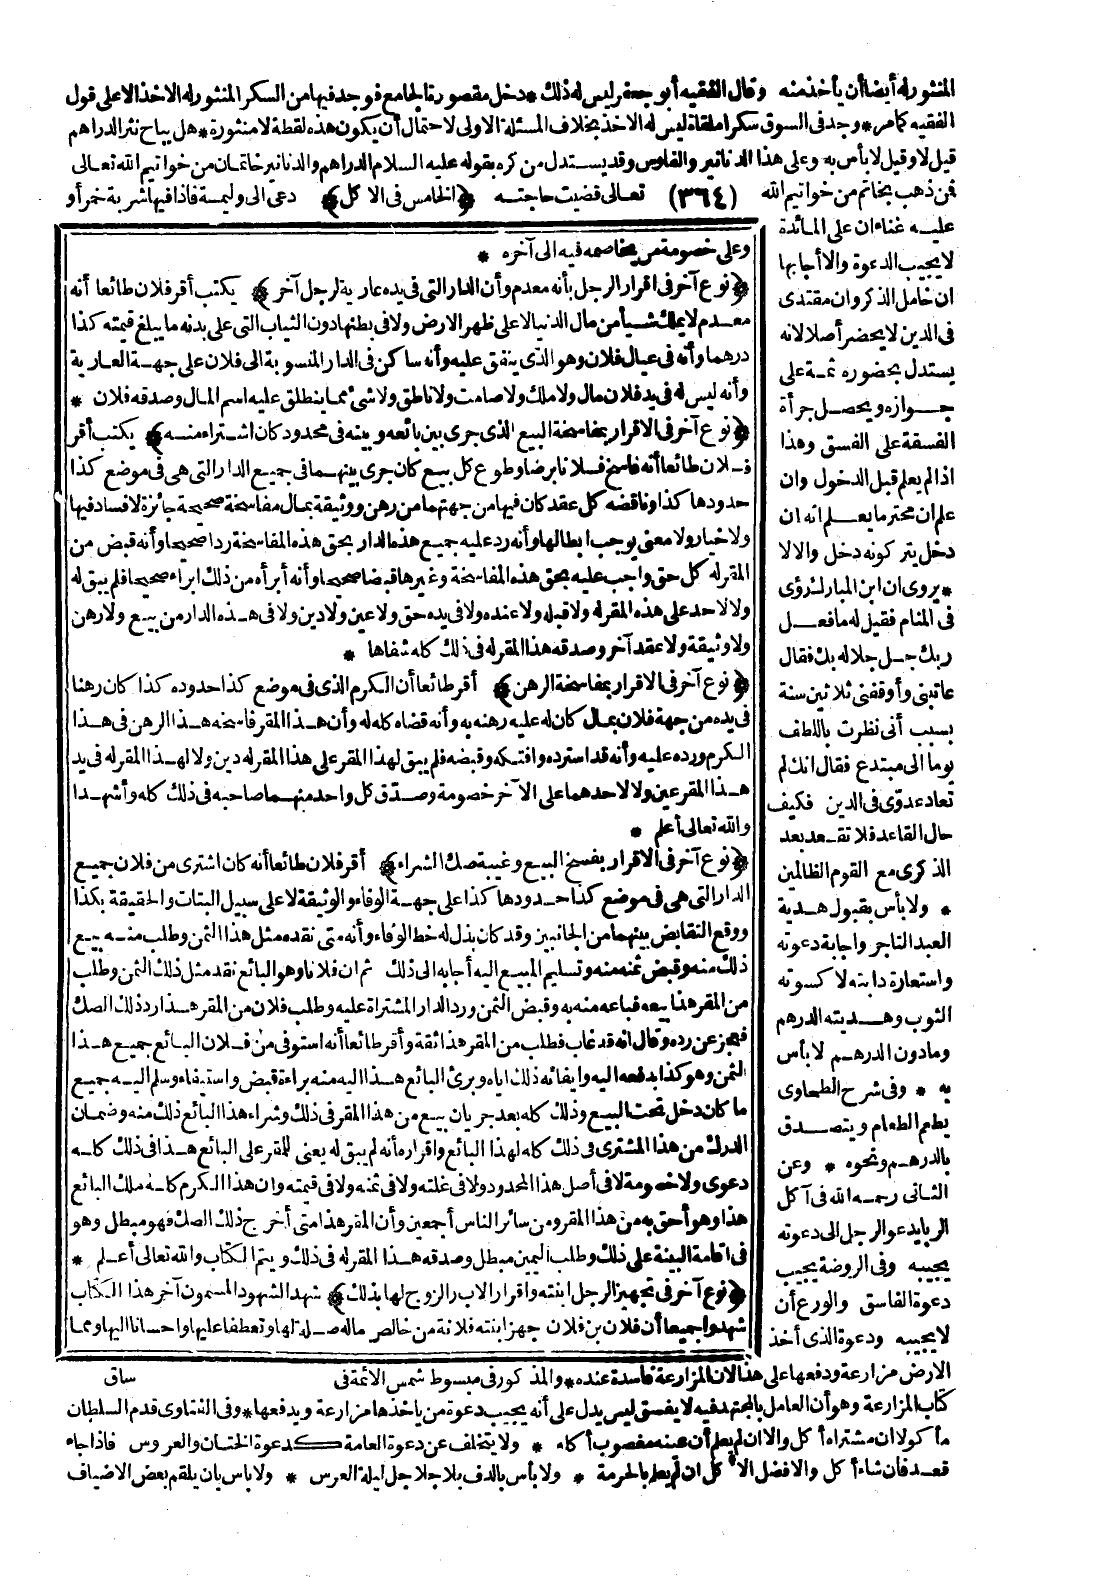 المنثور له أيضا أن يأخذ منه وقال الفقيه أبو جعفر ليس له ذلك * دخل مقصورة الجامع فوجد فيها من السكر المنثور له الاخذ الا على قول
الفقيه كما مر * وجد في السوق سكرا ملقاة ليس له الاخذ بخلاف المسئلة الاولى لاحتمال أن يكون هذه لقطة لا منثورة * هل يباح نثر الدراهم
قيل لا وقيل لا بأس به وعلى هذا الدنانير والفلوس وقد يستدل من كره بقوله عليه السلام الدراهم والدنانير خاتمان من خواتيم الله تعالى
فمن ذهب بخاتم من خواتيم الله (٣٦٤) تعالى قضيت حاجته ﴿الخامس في الاكل﴾ دعى الى وليمة فاذا فيها شربة خمر أو
عليه غناء ان على المائدة
لا يجيب الدعوة والا أجابها
ان خامل الذكر وان مقتدى
في الدين لا يحضر أصلا لانه
يستدل بحضوره ثمة على
جوازه ويحصل جرأة
الفسقة على الفسق وهذا
اذا لم يعلم قبل الدخول وان
علم ان محترما يعلم انه ان
دخل يتركونه دخل والا لا
* يروى ان ابن المبارك رؤى
في المنام فقيل له ما فعل
ربك جل جلاله بك فقال
عاتبنى وأوقفنى ثلاثين سنة
بسبب أنى نظرت باللطف
يوما الى مبتدع فقال انك لم
تعاد عدوى في الدين فكيف
حال القاعد فلا تقعد بعد
الذكرى مع القوم الظالمين
* ولا بأس بقبول هدية
العبد التاجر واجابة دعوته
واستعارة دابته لا كسوته
الثوب وهديته الدرهم
وما دون الدرهم لا بأس
به * وفي شرح الطحاوى
يطعم الطعام ويتصدق
بالدرهم ونحوه * وعن
الثانى رحمه الله في آكل
الربا يدعو الرجل الى دعوته
يجيبه وفي الروضة يجيب
دعوة الفاسق والورع أن
لا يجيبه ودعوة الذى أخذ
الارض مزارعة ودفعها على هذا لان المزارعة فاسدة عنده * والمذكور في مبسوط شمس الائمة في
كتاب المزارعة وهو أن العامل بالمجتهد فيه لا يفسق ليس يدل على أنه يجيب دعوة من يأخذها مزارعة ويدفعها * وفي الفتاوى قدم السلطان
مأكولا ان مشتراه أكل والا ان لم يعلم أن عينه مغصوب أكله * ولا يتخلف عن دعوة العامة كدعوة الختان والعروس فاذا جاء
قعد فان شاء أكل والافضل الاكل ان لم يعلم بالحرمة * ولا بأس بالدف بلا جلاجل ليلة العرس * ولا باس بان يلقم بعض الاضياف
وعلى خصومة من يخاصمه فيه الى آخره *
﴿نوع آخر في اقرار الرجل بأنه معدم وأن الدار التى في يده عارية لرجل آخر﴾ يكتب أقر فلان طائعا أنه
معدم لا يملك شيأ من مال الدنيا لا على ظهر الارض ولا في بطنها دون الثياب التى على بدنه ما يبلغ قيمته كذا
درهما وأنه في عيال فلان وهو الذى ينفق عليه وأنه ساكن في الدار المنسوبة الى فلان على جهة العارية
وأنه ليس له في يد فلان مال ولا ملك ولا صامت ولا ناطق ولا شئ مما ينطلق عليه اسم المال وصدقه فلان *
﴿نوع آخر في الاقرار بمفاسخة البيع الذى جرى بين بائعه وبينه في محدود كان اشتراه منه﴾ يكتب أقر
فلان طائعا أنه فاسخ فلانا برضا وطوع كل بيع كان جرى بينهما في جميع الدار التى هى في موضع كذا
حدودها كذا وناقضه كل عقد كان فيها من جهتهما من رهن ووثيقة بمال مفاسخة صحيحة جائزة لا فساد فيها
ولا خيار ولا معنى يوجب ابطالها وأنه رد عليه جميع هذه الدار بحق هذه المفاسخة ردا صحيحا وأنه قبض من
المقر له كل حق واجب عليه بحق هذه المفاسخة وغيرها قبضا صحيحا وأنه أبرأه من ذلك ابراء صحيحا فلم يبق له
ولا لاحد على هذه المقر له ولا قبله ولا عنده ولا في يده حق ولا عين ولا دين ولا في هذه الدار من بيع ولا رهن
ولا وثيقة ولا عقد آخر وصدقه هذا المقر له في ذلك كله شفاها *
﴿نوع آخر في الاقرار بمفاسخة الرهن﴾ أقر طائعا أن الكرم الذى في موضع كذا حدوده كذا كان رهنا
في يده من جهة فلان بمال كان له عليه رهنه به وأنه قضاه كله له وأن هذا المقر فاسخه هذا الرهن في هذا
الكرم ورده عليه وأنه قد استرده وافتكه وقبضه فلم يبق لهذا المقر على هذا المقر له دين ولا لهذا المقر له في يد
هذا المقر عين ولا لاحدهما على الآخر خصومة وصدق كل واحد منهما صاحبه في ذلك كله وأشهدا
والله تعالى أعلم *
﴿نوع آخر في الاقرار بفسخ البيع وغيبة صك الشراء﴾ أقر فلان طائعا أنه كان اشترى من فلان جميع
الدار التى هى في موضع كذا حدودها كذا على جهة الوفاء والوثيقة لا على سبيل البتات والحقيقة بكذا
ووقع التقابض بينهما من الجانبين وقد كان بذل له خط الوفاء وأنه متى نقده مثل هذا الثمن وطلب منه بيع
ذلك منه وقبض ثمنه منه وتسليم المبيع اليه أجابه الى ذلك ثم ان فلانا وهو البائع نقد مثل ذلك الثمن وطلب
من المقر هذا بيعه فباعه منه به وقبض الثمن ورد الدار المشتراة عليه وطلب فلان من المقر هذا رد ذلك الصك
فعجز عن رده وقال انه قد غاب فطلب من المقر هذا ثقة وأقر طائعا أنه استوفى من فلان البائع جميع هذا
الثمن وهو كذا بدفعه اليه وايفائه ذلك اياه وبرئ البائع هذا اليه منه براءة قبض واستيفاء وسلم اليه جميع
ما كان دخل تحت البيع وذلك كله بعد جريان بيع من هذا المقر في ذلك وشراء هذا البائع ذلك منه وضمان
الدرك من هذا المشترى في ذلك كله لهذا البائع واقراره أنه لم يبق له يعنى للمقر على البائع هذا في ذلك كله
دعوى ولا خصومة لا في أصل هذا المحدود ولا في غلته ولا في ثمنه ولا في قيمته وان هذا الكرم كله ملك البائع
هذا وهو أحق به من هذا المقر ومن سائر الناس أجمعين وأن المقر هذا متى أخرج ذلك الصك فهو مبطل وهو
في اقامة البينة على ذلك وطلب اليمين مبطل وصدقه هذا المقر له في ذلك ويتم الكتاب والله تعالى أعلم *
﴿نوع آخر في تجهيز الرجل ابنته واقرار الاب والزوج لها بذلك﴾ شهد الشهود المسمون آخر هذا الكتاب
شهدوا جميعا أن فلان بن فلان جهز ابنته فلانة من خالص ماله صلة لها وتعطفا عليها واحسانا اليها ومما
ساق